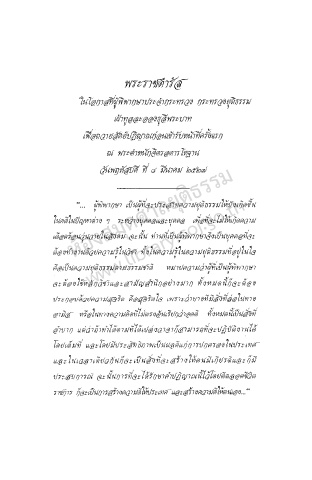 พระราชดำรัส
ในโอกาสที่ผู้พิพากษาประจำกระทรวง กระทรวงยุติธรรม
เฝ้าทูลละอองธุลีพระบาท
เพื่อถวายสัตย์ปฏิญาณก่อนเข้ารับหน้าที่ครั้งแรก
ณ พระตำหนักจิตรลดารโหฐาน
วันพฤหัสบดี ที่ ๘ มีนาคม ๒๕๒๗
"... ผู้พิพากษา เป็นผู้ที่จะประสาทความยุติธรรมให้บังเกิดขึ้น
ในคดีในปัญหาต่าง ๆ ระหว่างบุคคลและบุคคล เพื่อที่จะไม่ให้เกิดความ
เดือดร้อนวุ่นวายในสังคม ฉะนั้น ท่านที่เป็นผู้พิพากษาจึงเป็นบุคคลที่จะ
ต้องทำงานด้วยความรู้ในวิชา ทั้งใดความรู้ในความยุติธรรมที่อยู่ในใจ
คือเป็นความยุติธรรมตามธรรมชาติ หมายความว่าผู้ที่เป็นผู้พิพากษา
จะต้องใช้หลักวิชาและสามัญสำนึกอย่างมาก ทั้งหมดนี้ก็จะต้อง
ประกอบด้วยความสุจริต คือสุจริตใจ เพราะว่าบางทีมีสิ่งที่ล่อในทาง
อามิส หรือในทางความคิดที่ไม่ตรงอันเรียกว่าอคติ ทั้งหมดนี้เป็นสิ่งที่
ลำบาก แต่ว่าถ้าทำได้ตามที่ได้เปล่งวาจาก็สามารถที่จะปฏิบัติงานได้
โดยเต็มที่ และโดยมีประสิทธิภาพเป็นผลดีแก่การปกครองในประเทศ
และในเวลาเดียวกันก็จะเป็นสิ่งที่จะสร้างให้ตนมีเกียรติและก็มี
ประสบการณ์ ฉะนั้นการที่จะได้รักษาคำปฏิญาณนี้ไว้โดยตลอดชีวิต
ราชการ ก็จะเป็นการสร้างความดีให้ประเทศ และสร้างความดีให้ตนเอง..."